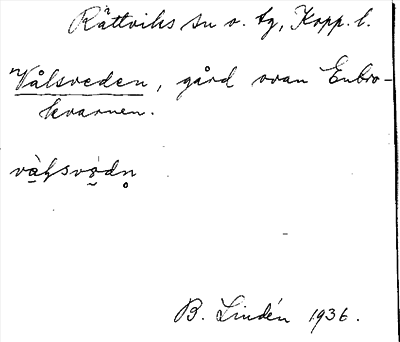 Rättviks sn o. tg, Kopp. l.
Vålsveden, gård ovan Enbro-
kvarnen.
B. Lindén 1936.